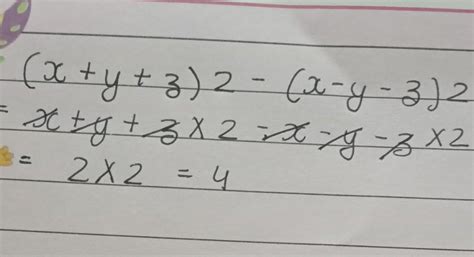 (x+y+3)2-(x-y-3)2
= x+y+3×2-x-y-3×2
= 2×2 = 4